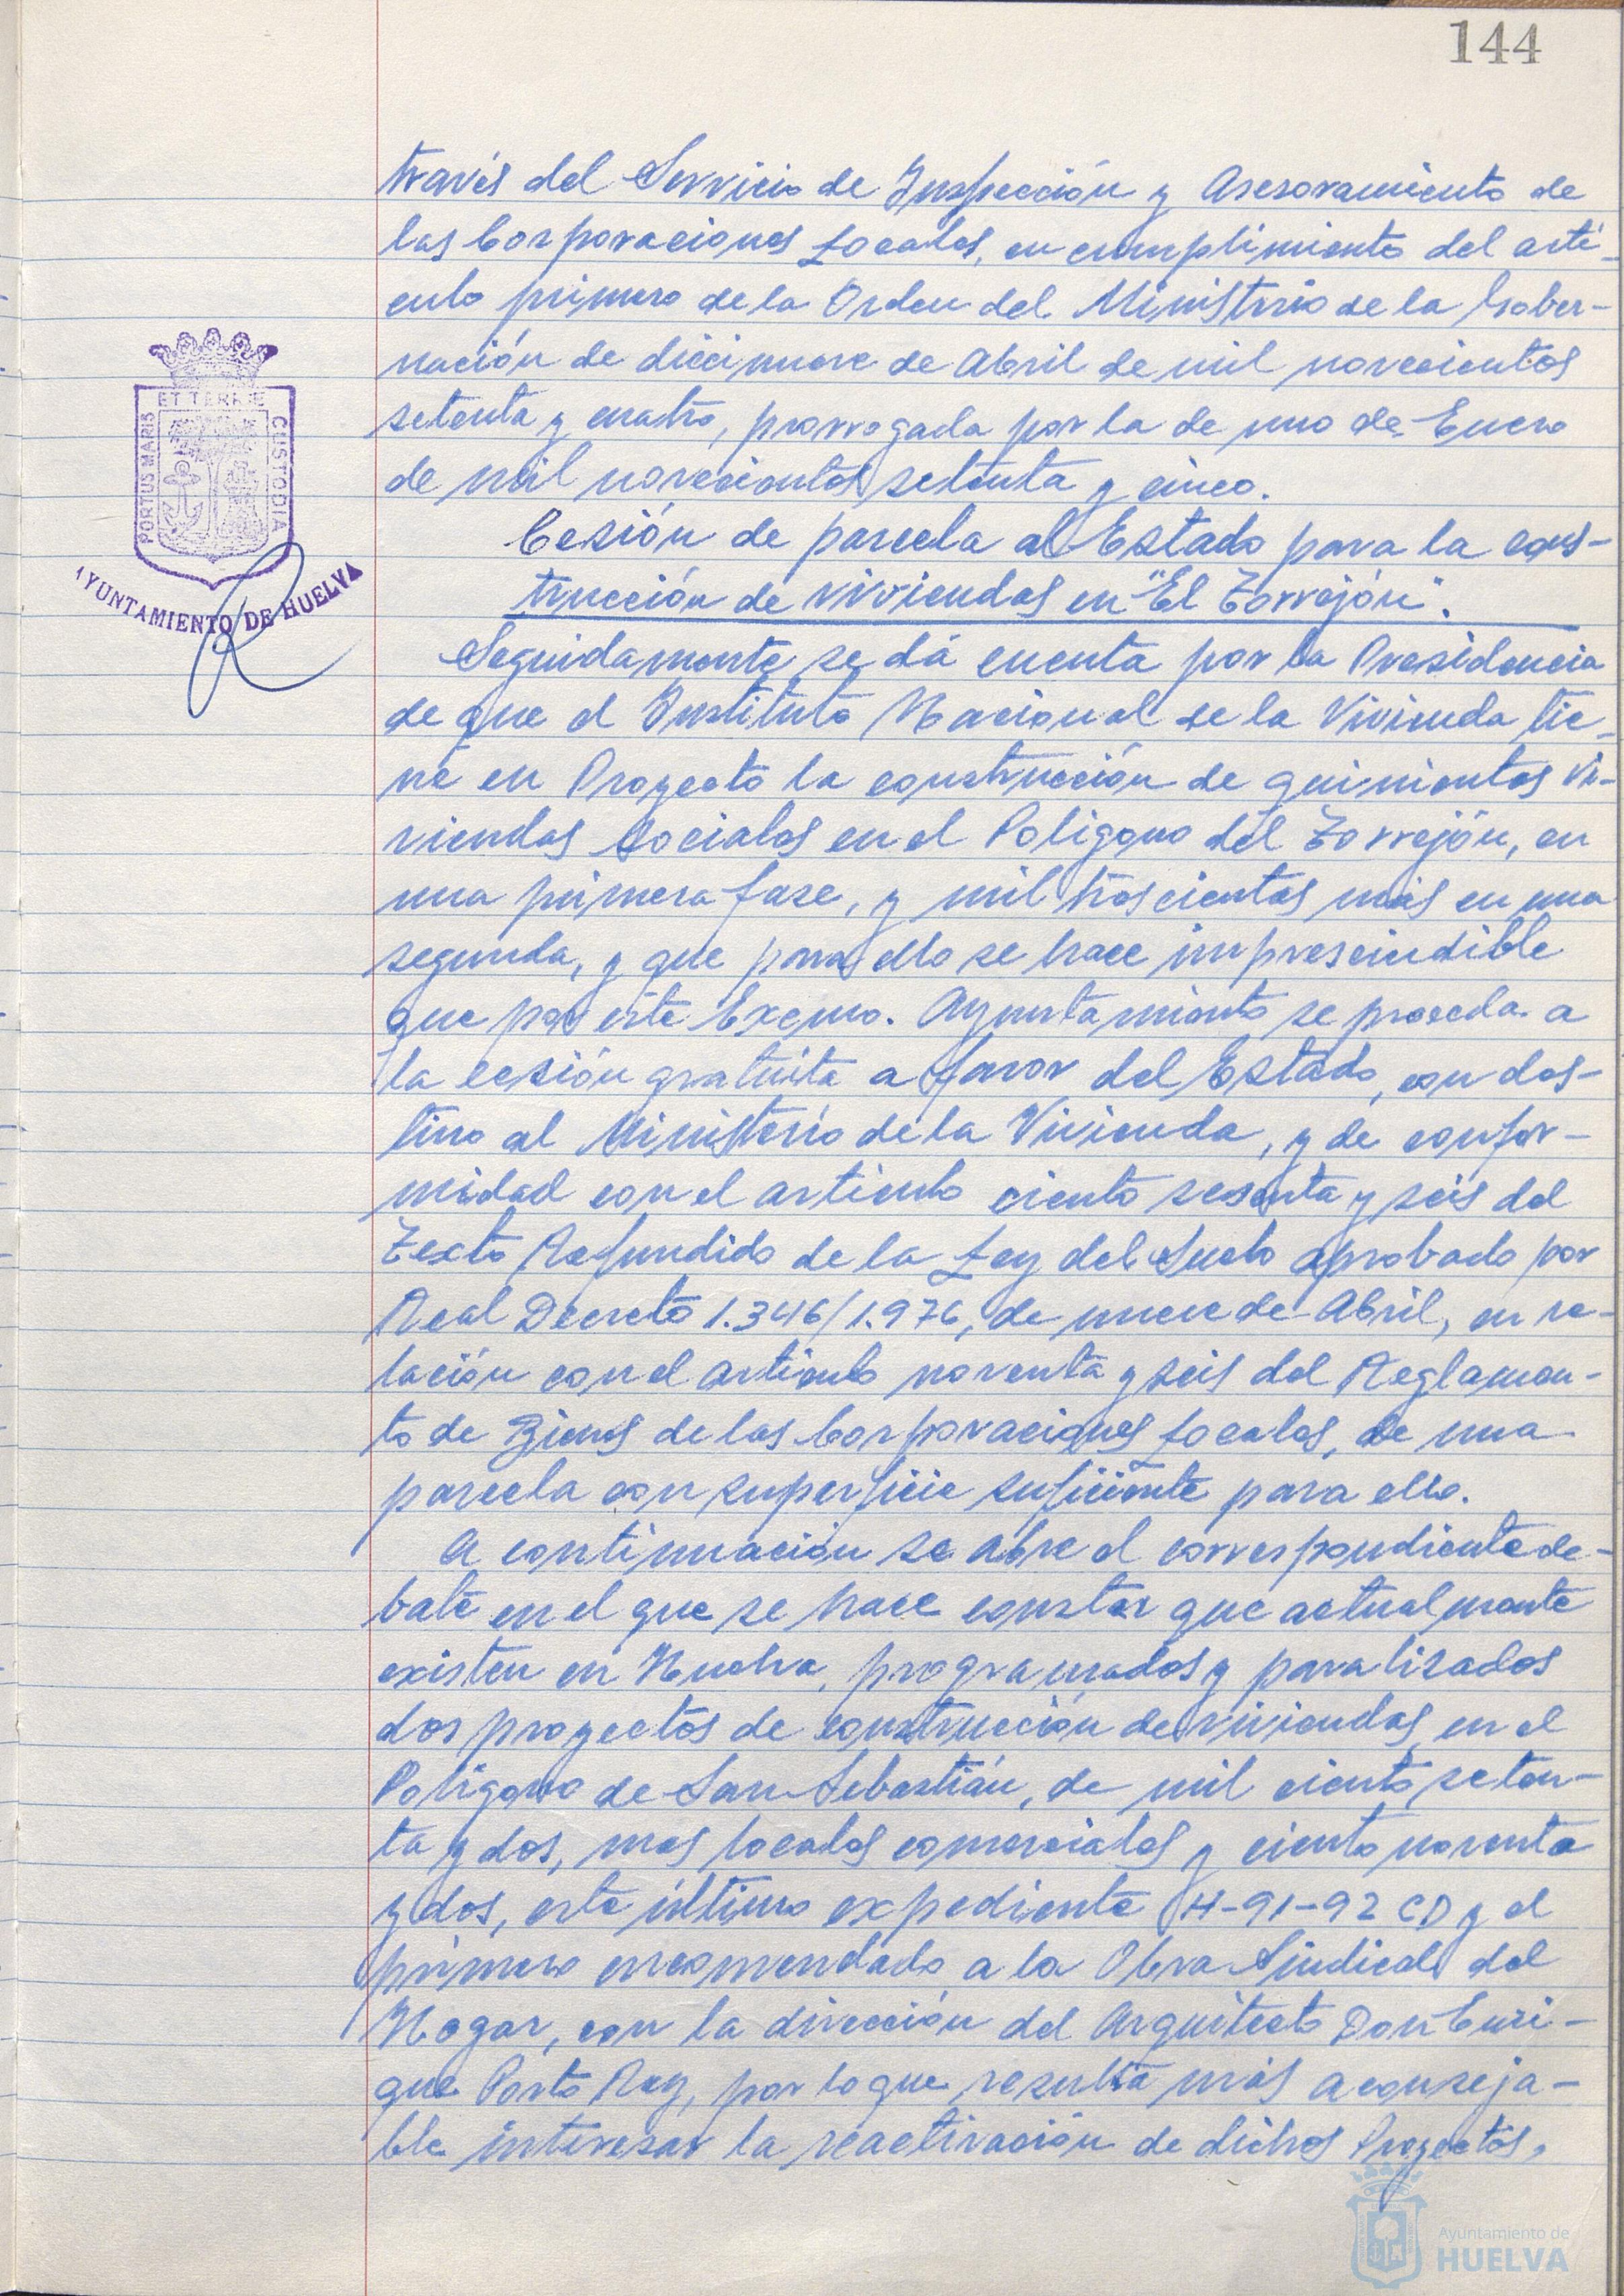 144
través del Servicio de Inspección y Asesoramiento de
las Corporaciones Locales, en cumplimiento del artí-
culo primero de la Orden del Ministerio de la Gober-
nación de diecinueve de Abril de mil novecientos
setenta y cuatro, prorrogada por la de uno de Enero
de mil novecientos setenta y cinco.
Cesión de parcela al Estado para la cons-
trucción de viviendas en "El Torrejón".
Seguidamente se dá cuenta por la Presidencia
de que el Instituto Nacional de la Vivienda tie-
ne en Proyecto la construcción de quinientas vi-
viendas sociales en el Poligono del Torrejón, en
una primera fase, y mil trescientas más en una
segunda, y que para ello se hace imprescindible
que por este Excmo. Ayuntamiento se proceda a
la cesión gratuita a favor del Estado, con des-
tino al Ministerio de la Vivienda, y de confor-
midad con el articulo ciento sesenta y seis del
Texto Refundido de la Ley del Suelo aprobado por
Real Decreto 1.346/1.976, de nueve de Abril, en re-
lación con el articulo noventa y seis del Reglamen-
to de Bienes de las Corporaciones Locales, de una
parcela con superficie suficiente para ello.
A continuación se abre el correspondiente de-
bate en el que se hace constar que actualmente
existen en Huelva, programados y paralizados
dos proyectos de construcción de viviendas en el
Poligono de San Sebastián, de mil ciento seten-
ta y dos, mas locales comerciales y ciento noventa
y dos, este último expediente H-91-92 CD y el
primero encomendado a la Obra Sindical del
Hogar, con la dirección del Arquitecto Don Enri-
que Porto Rey, por lo que resulta más aconseja-
ble interesar la reactivación de dichos Proyectos,
PORTUS MARIS
ET TERRÆ
CUSTODIA
AYUNTAMIENTO DE HUELVA
Ayuntamiento de
HUELVA